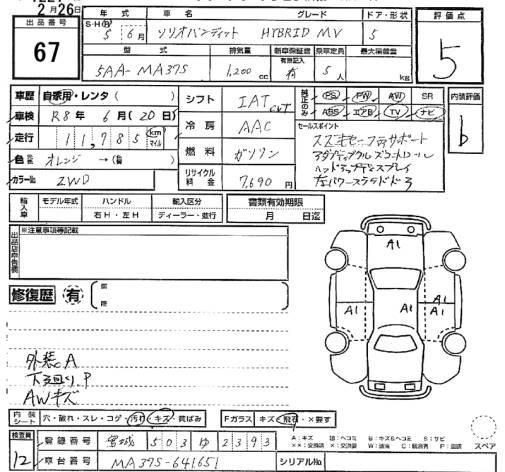 2月26日
出品番号 67
年式 車名 グレード ドア・形状
S・H(R) 5年6月 ソリオバンディット HYBRID MV 5
型式 排気量 新車保証書 乗車定員 最大積載量
5AA-MA37S 1,200cc 有無記入 有 5人 kg
評価点 5
車歴 自家用・レンタ( )
車検 R8年6月(20日)
走行 11,785 km マイル
色 オレンジ→(替)
カラーNo 2WD
シフト IAT CVT
冷房 AAC
燃料 ガソリン
リサイクル料金 7,690円
純正のみ PS PW AW SR
ABS エアB TV ナビ
セールスポイント
スズキセーフティサポート
アダプティブクルーズコントロール
ヘッドアップディスプレイ
左パワースライドドア
内装評価 b
輸入車 モデル年式 ハンドル 輸入区分 書類有効期限
年 右H・左H ディーラー・並行 月 日迄
出品店申告欄 ※注意事項等記載
修復歴 有
A1
A1 A1 A1
A1
外装A
下廻りP
AWキズ
内装シート 穴・破れ・スレ・コゲ・汚れ・キズ・黄ばみ Fガラス キズ・飛石・×要す
検査員 12
登録番号 宮城 503 ゆ 2393
車台番号 MA37S-641651 シリアルNo
A:キズ U:ヘコミ B:キズ&ヘコミ S:サビ
スペア